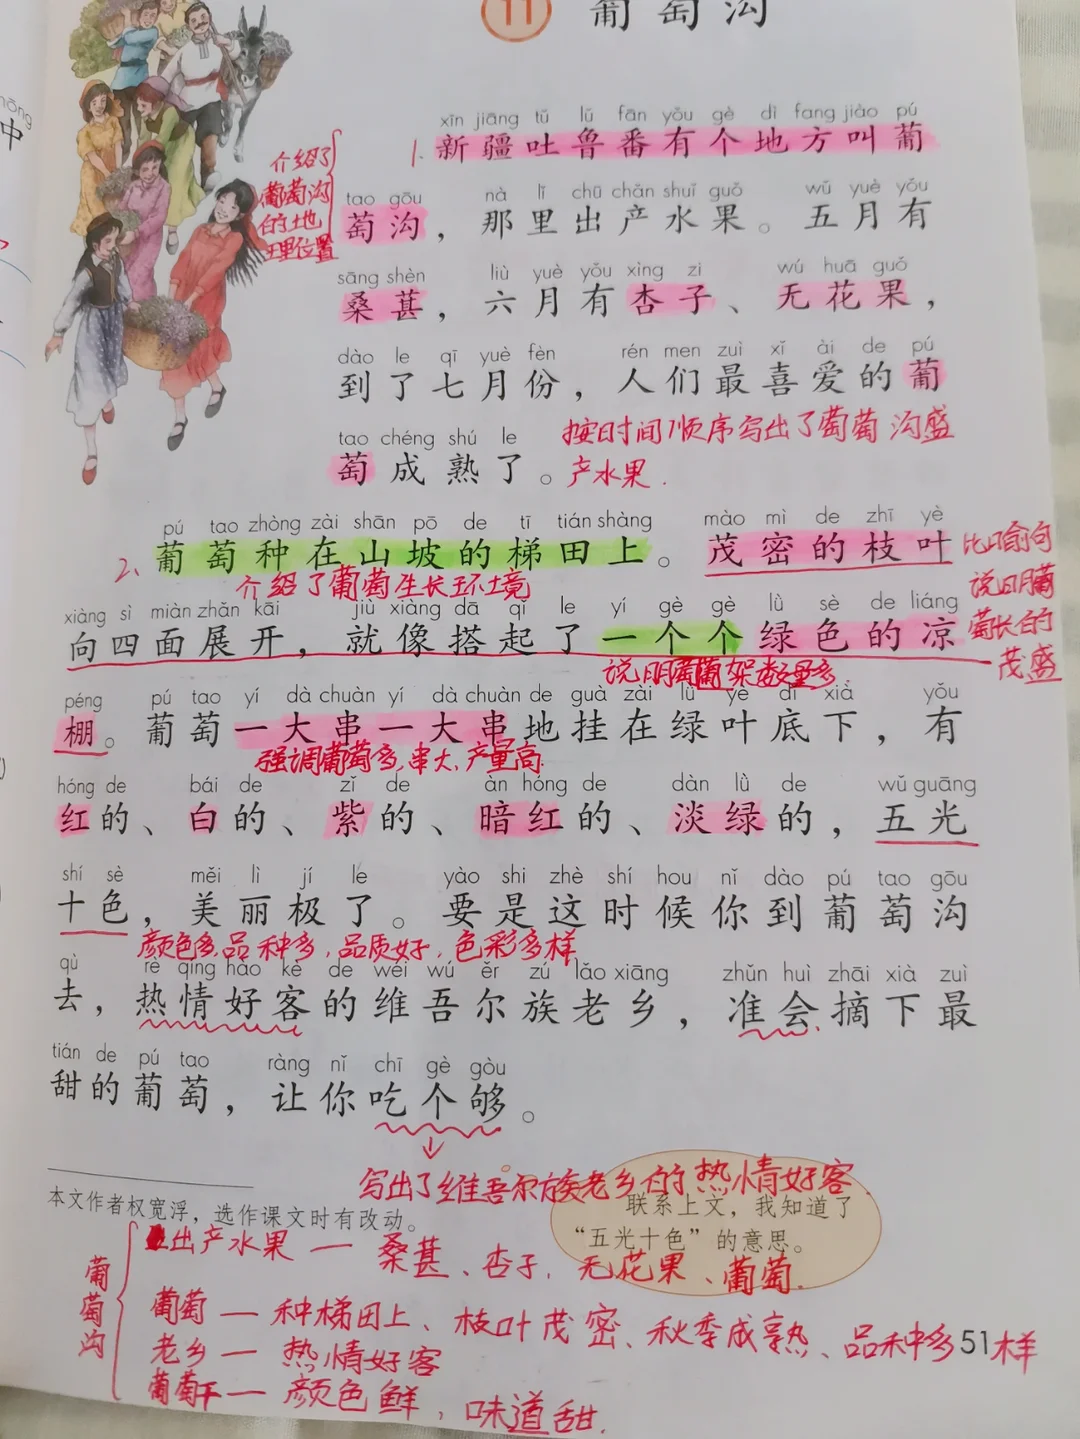 11 葡萄沟
xīn jiāng tǔ lǔ fān yǒu gè dì fang jiào pú
1. 新疆吐鲁番有个地方叫葡
介绍了
葡萄沟
的地
理位置
tao gōu nà lǐ chū chǎn shuǐ guǒ wǔ yuè yǒu
萄沟，那里出产水果。五月有
sāng shèn liù yuè yǒu xìng zi wú huā guǒ
桑葚，六月有杏子、无花果，
dào le qī yuè fèn rén men zuì xǐ ài de pú
到了七月份，人们最喜爱的葡
tao chéng shú le
萄成熟了。
按时间顺序写出了葡萄沟盛
产水果.
pú tao zhòng zài shān pō de tī tián shàng mào mì de zhī yè
2、葡萄种在山坡的梯田上。茂密的枝叶
介绍了葡萄生长环境
比喻句
说明葡
萄长的
茂盛
xiàng sì miàn zhǎn kāi jiù xiàng dā qǐ le yí gè gè lǜ sè de liáng
向四面展开，就像搭起了一个个绿色的凉
说明葡萄架数量多
péng pú tao yí dà chuàn yí dà chuàn de guà zài lǜ yè dǐ xià yǒu
棚。葡萄一大串一大串地挂在绿叶底下，有
强调葡萄多、串大、产量高
hóng de bái de zǐ de àn hóng de dàn lǜ de wǔ guāng
红的、白的、紫的、暗红的、淡绿的，五光
shí sè měi lì jí le yào shi zhè shí hou nǐ dào pú tao gōu
十色，美丽极了。要是这时候你到葡萄沟
颜色多品种多，品质好，色彩多样
qù rè qíng hào kè de wéi wú ěr zú lǎo xiāng zhǔn huì zhāi xià zuì
去，热情好客的维吾尔族老乡，准会摘下最
tián de pú tao ràng nǐ chī gè gòu
甜的葡萄，让你吃个够。
写出了维吾尔族老乡的热情好客.
本文作者权宽浮，选作课文时有改动。
联系上文，我知道了
“五光十色”的意思。
葡萄沟
出产水果 — 桑葚、杏子，无花果、葡萄.
葡萄 — 种梯田上、枝叶茂密、秋季成熟、品种多样
老乡 — 热情好客
葡萄干 — 颜色鲜，味道甜.
51